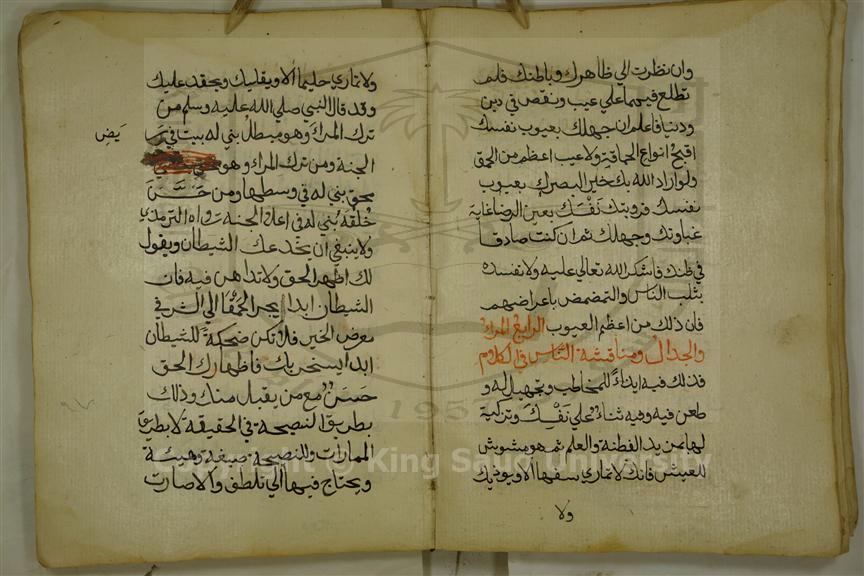 وان نظرت الي ظاهرك وباطنك فلم
تطلع فيهما علي عيب ونقص في دين
ودنيا فاعلم ان جهلك بعيوب نفسك
اقبح انواع الحماقة ولا عيب اعظم من الحمق
ولو اراد الله بك خيرا لبصرك بعيوب
نفسك فرويتك نفسك بعين الرضا غاية
غباوتك وجهلك ثم ان كنت صادقا
في ظنك فاشكر الله تعالي عليه ولا تفسده
بثلب الناس والتمضمض باعراضهم
فان ذلك من اعظم العيوب الرابع المراء
والجدال ومناقشة الناس في الكلام
فذلك فيه ايذاء للمخاطب وتجهيل له و
طعن فيه وفيه ثناء علي نفسك وتزكية
لها بمزيد الفطنة والعلم ثم هو مشوش
للعيش فانك لا تماري سفيها الا ويوذيك
ولا
ولا تماري حليما الا ويقليك ويحقد عليك
وقد قال النبي صلي الله عليه وسلم من
ترك المراء وهو مبطل بني له بيت في ربض
الجنة ومن ترك المراء وهو
محق بني له في وسطها ومن حسن
خلقه بني له في اعلا الجنة رواه الترمذي
ولا ينبغي ان يخدعك الشيطان ويقول
لك اظهر الحق ولا تداهن فيه فان
الشيطان ابدا يجر الحمقا الي الشر في
معرض الخير فلا تكن ضحكة للشيطان
ابدا يسخر بك فاظهارك الحق
حسن مع من يقبل منك وذلك
بطريق النصيحة في الحقيقة لا بطريق
الممارات وللنصيحة صيغة وهيئة
ويحتاج فيها الي تلطف والا صارت